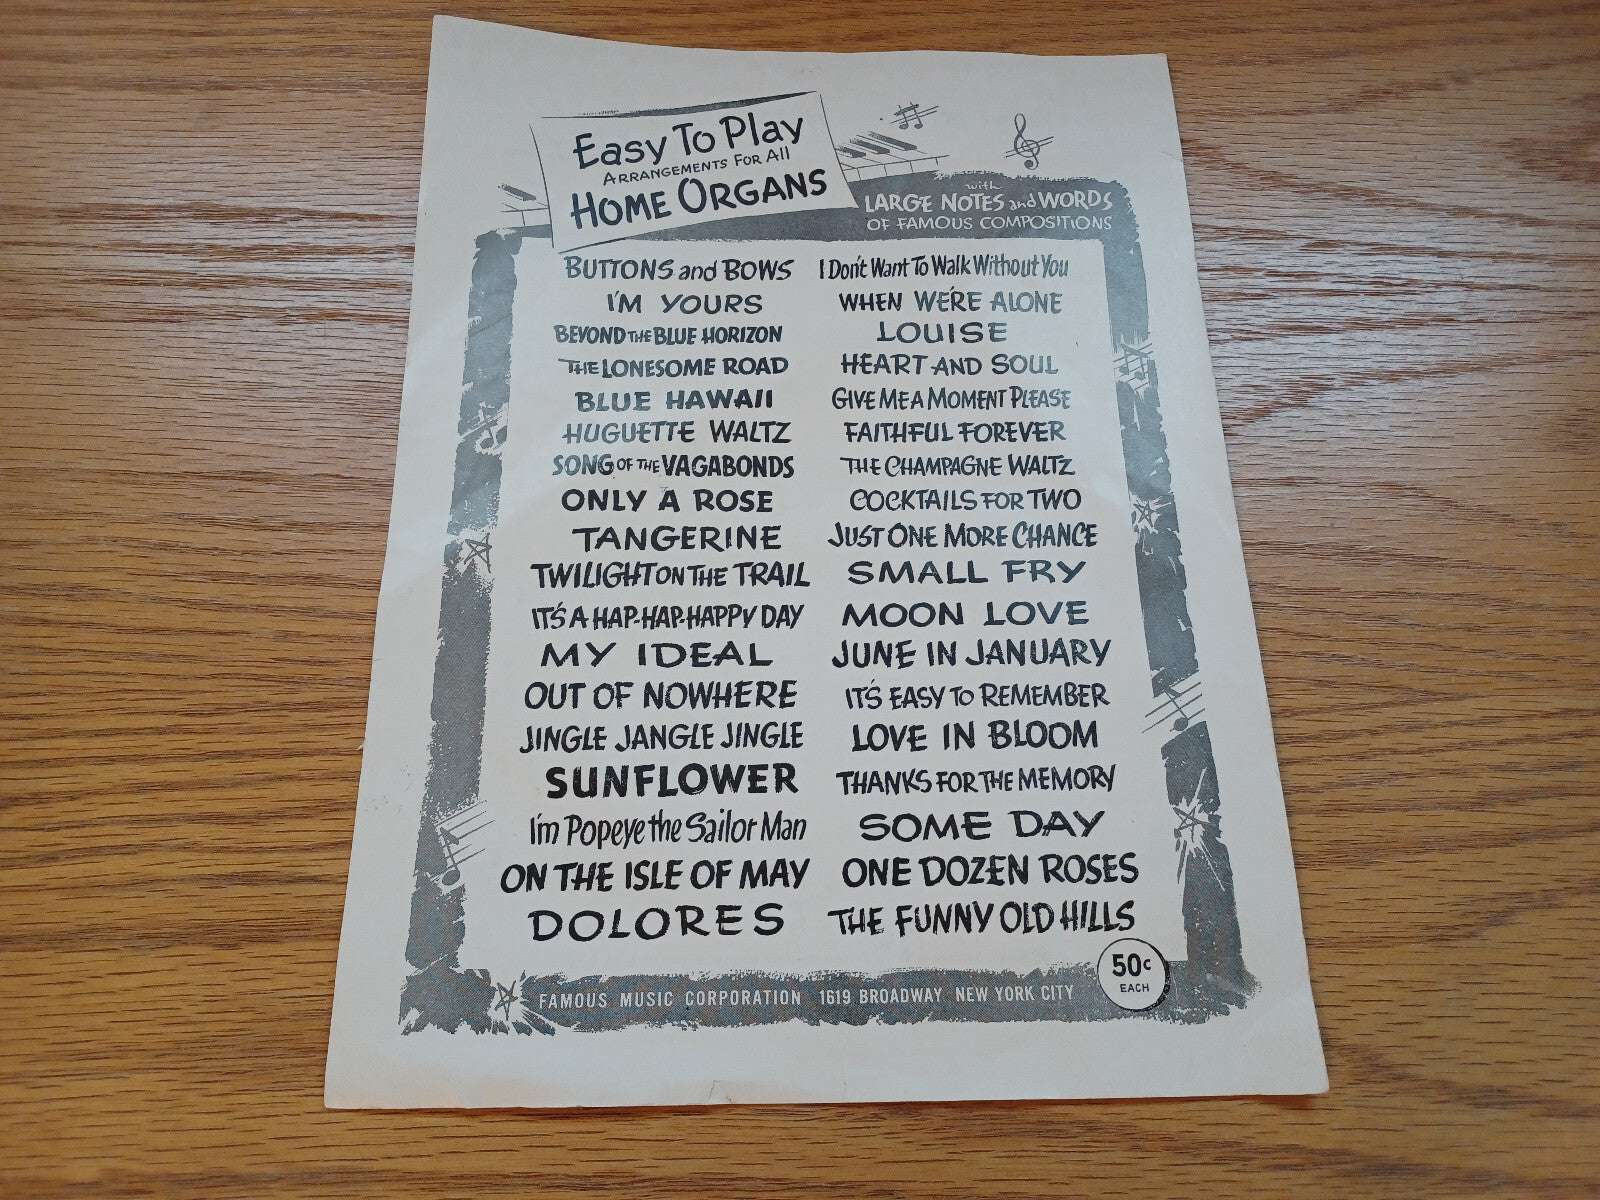 Easy To Play
ARRANGEMENTS FOR All
HOME ORGANS
with
LARGE NOTES and WORDS
OF FAMOUS COMPOSITIONS
BUTTONS and BOWS
I'M YOURS
BEYOND THE BLUE HORIZON
THE LONESOME ROAD
BLUE HAWAII
HUGUETTE WALTZ
SONG OF THE VAGABONDS
ONLY A ROSE
TANGERINE
TWILIGHT ON THE TRAIL
IT'S A HAP-HAP-HAPPY DAY
MY IDEAL
OUT OF NOWHERE
JINGLE JANGLE JINGLE
SUNFLOWER
I'm Popeye the Sailor Man
ON THE ISLE OF MAY
DOLORES
I Don't Want To Walk Without You
WHEN WE'RE ALONE
LOUISE
HEART AND SOUL
GIVE ME A MOMENT PLEASE
FAITHFUL FOREVER
THE CHAMPAGNE WALTZ
COCKTAILS FOR TWO
JUST ONE MORE CHANCE
SMALL FRY
MOON LOVE
JUNE IN JANUARY
IT'S EASY TO REMEMBER
LOVE IN BLOOM
THANKS FOR THE MEMORY
SOME DAY
ONE DOZEN ROSES
THE FUNNY OLD HILLS
50c
EACH
FAMOUS MUSIC CORPORATION 1619 BROADWAY NEW YORK CITY